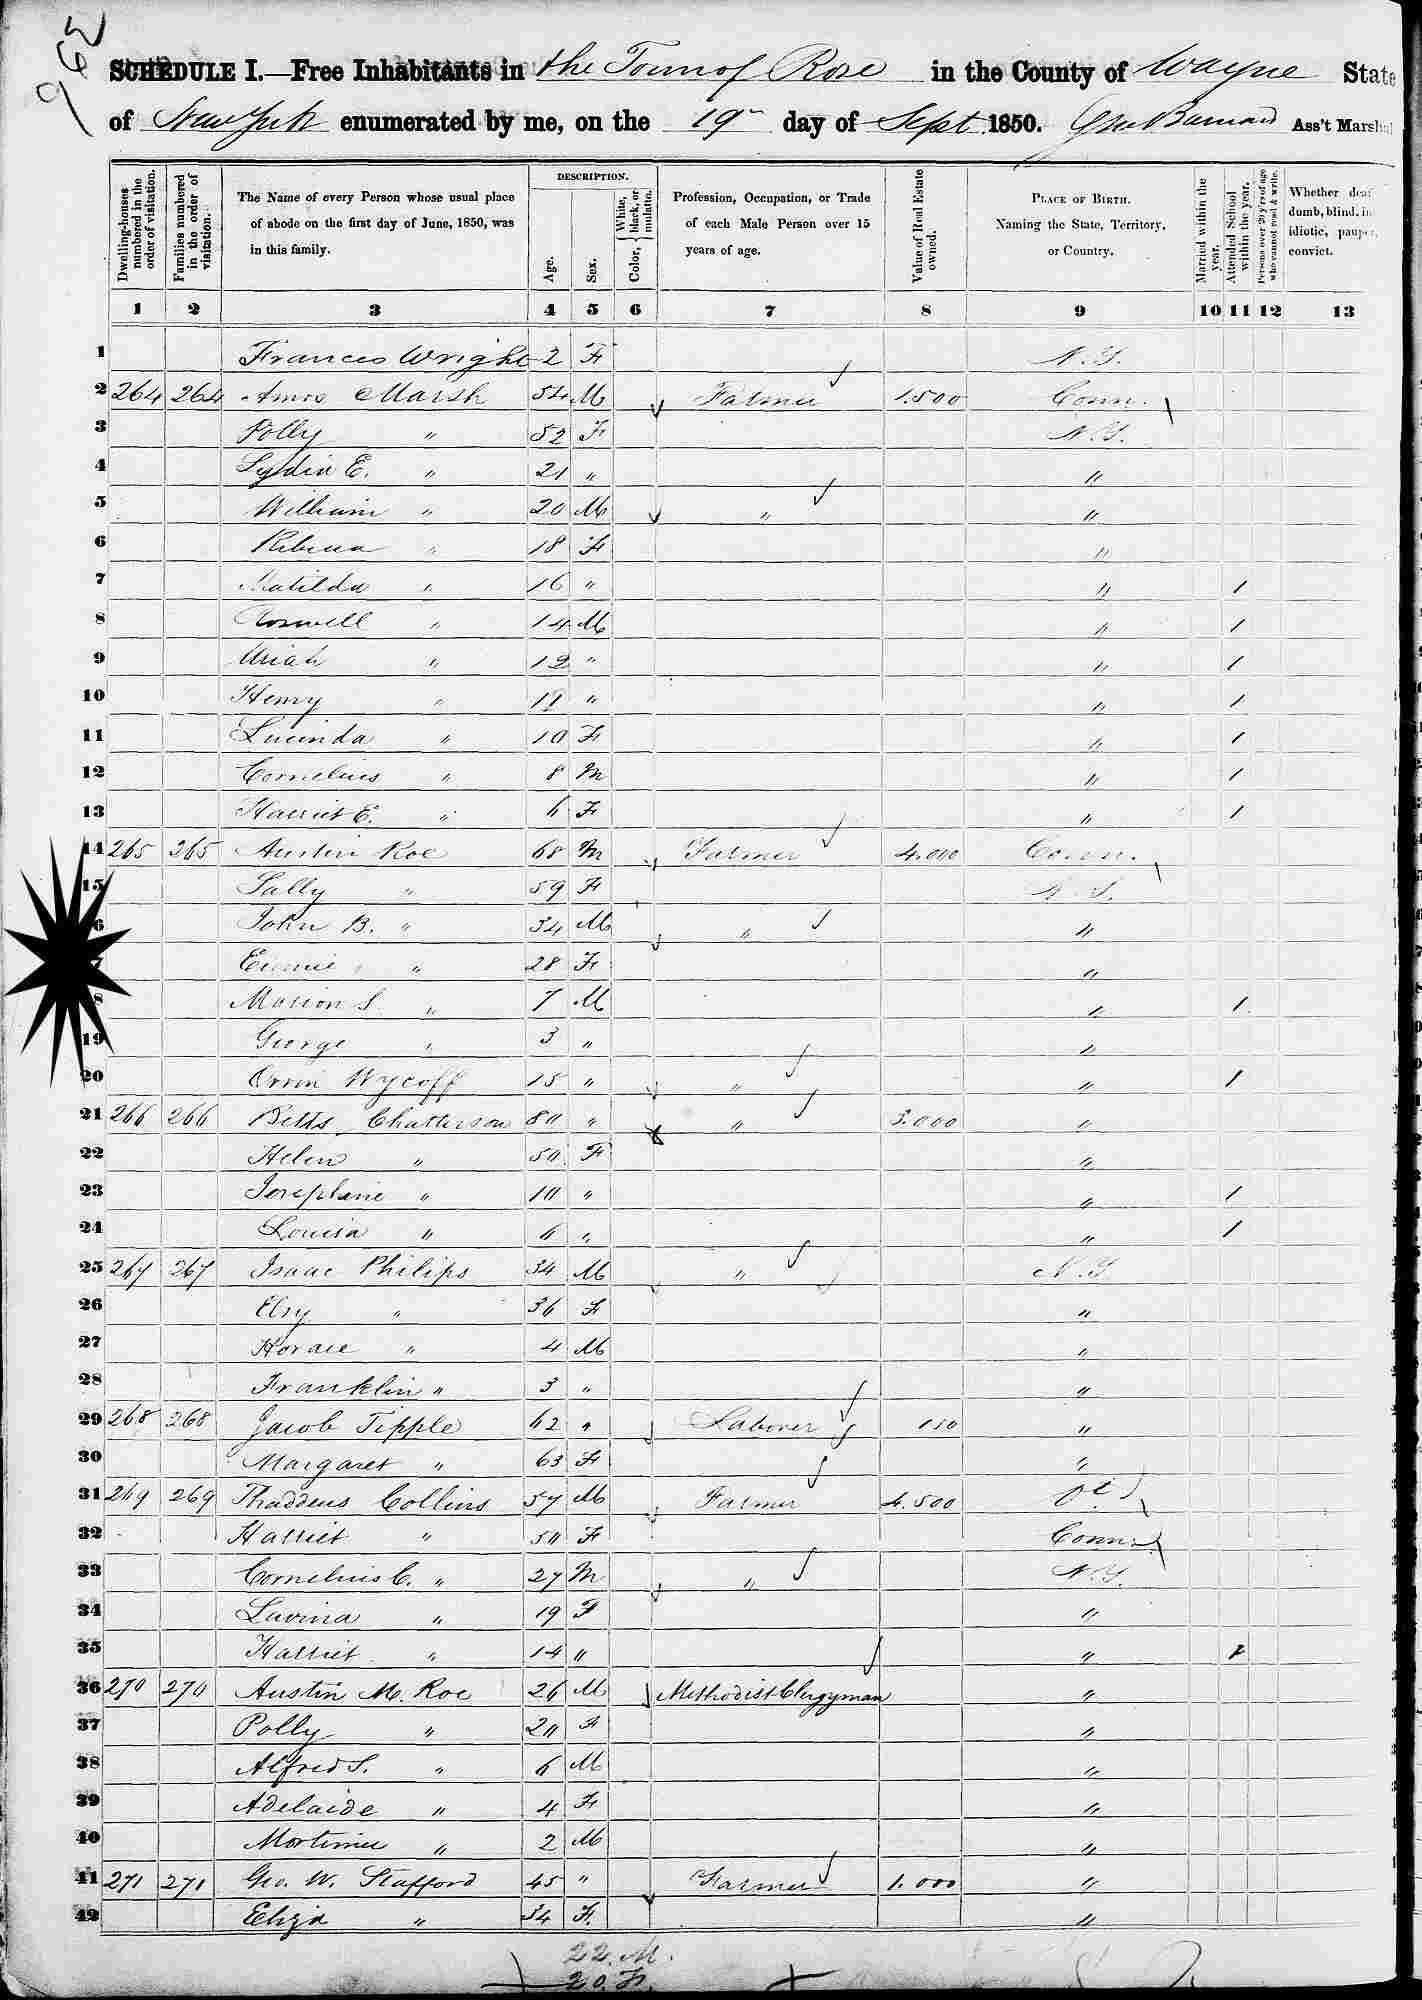 963
SCHEDULE I.—Free Inhabitants in the Town of Rose in the County of Wayne State
of New York enumerated by me, on the 19th day of Sept 1850. Geo Barnard Ass't Marshal
DESCRIPTION.
Dwelling-houses numbered in the order of visitation.
Families numbered in the order of visitation.
The Name of every Person whose usual place of abode on the first day of June, 1850, was in this family.
Age.
Sex.
Color, { White, black, or mulatto.
Profession, Occupation, or Trade of each Male Person over 15 years of age.
Value of Real Estate owned.
PLACE OF BIRTH. Naming the State, Territory, or Country.
Married within the year.
Attended School within the year.
Persons over 20 y'rs of age who cannot read & write.
Whether deaf dumb, blind, in idiotic, pauper, convict.
1 2 3 4 5 6 7 8 9 10 11 12 13
1 Frances Wright 2 F N.Y.
2 264 264 Amos Marsh 54 M Farmer 1.500 Conn.
3 Polly " 52 F N.Y.
4 Lydia E. " 21 " "
5 William " 20 M " "
6 " 18 F "
7 Matilda " 16 " " 1
8 Roswell " 14 M " 1
9 Uriah " 12 " " 1
10 Henry " 11 " " 1
11 Lucinda " 10 F " 1
12 Cornelius " 8 M " 1
13 Harriet E. " 6 F " 1
14 265 265 Austin Roe 68 M Farmer 4.000 Conn.
15 Sally " 59 F N.Y.
6 John B. " 34 M " "
7 " 28 F "
8 Marion S. " 7 M " 1
19 George " 3 " "
20 Orrin Wycoff 15 " " " 1
21 266 266 Betts Chatterson 80 " " 3.000 "
22 Helen " 50 F "
23 Josephine " 10 " " 1
24 Louisa " 6 " " 1
25 267 267 Isaac Philips 34 M " N.Y.
26 " 36 F "
27 Horace " 4 M "
28 Franklin " 3 " "
29 268 268 Jacob Tipple 62 " Laborer 150 "
30 Margaret " 63 F "
31 269 269 Thaddeus Collins 57 M Farmer 4.500 Vt
32 Harriet " 50 F Conn.
33 Cornelius C. " 27 M " N.Y.
34 Lavina " 19 F "
35 Harriet " 14 " " 1
36 270 270 Austin M. Roe 26 M Methodist Clergyman "
37 Polly " 20 F "
38 Alfred S. " 6 M "
39 Adelaide " 4 F "
40 Mortimer " 2 M "
41 271 271 Geo. W. Stafford 45 " Farmer 1.000 "
42 Eliza " 34 F. "
22. M.
20. F.